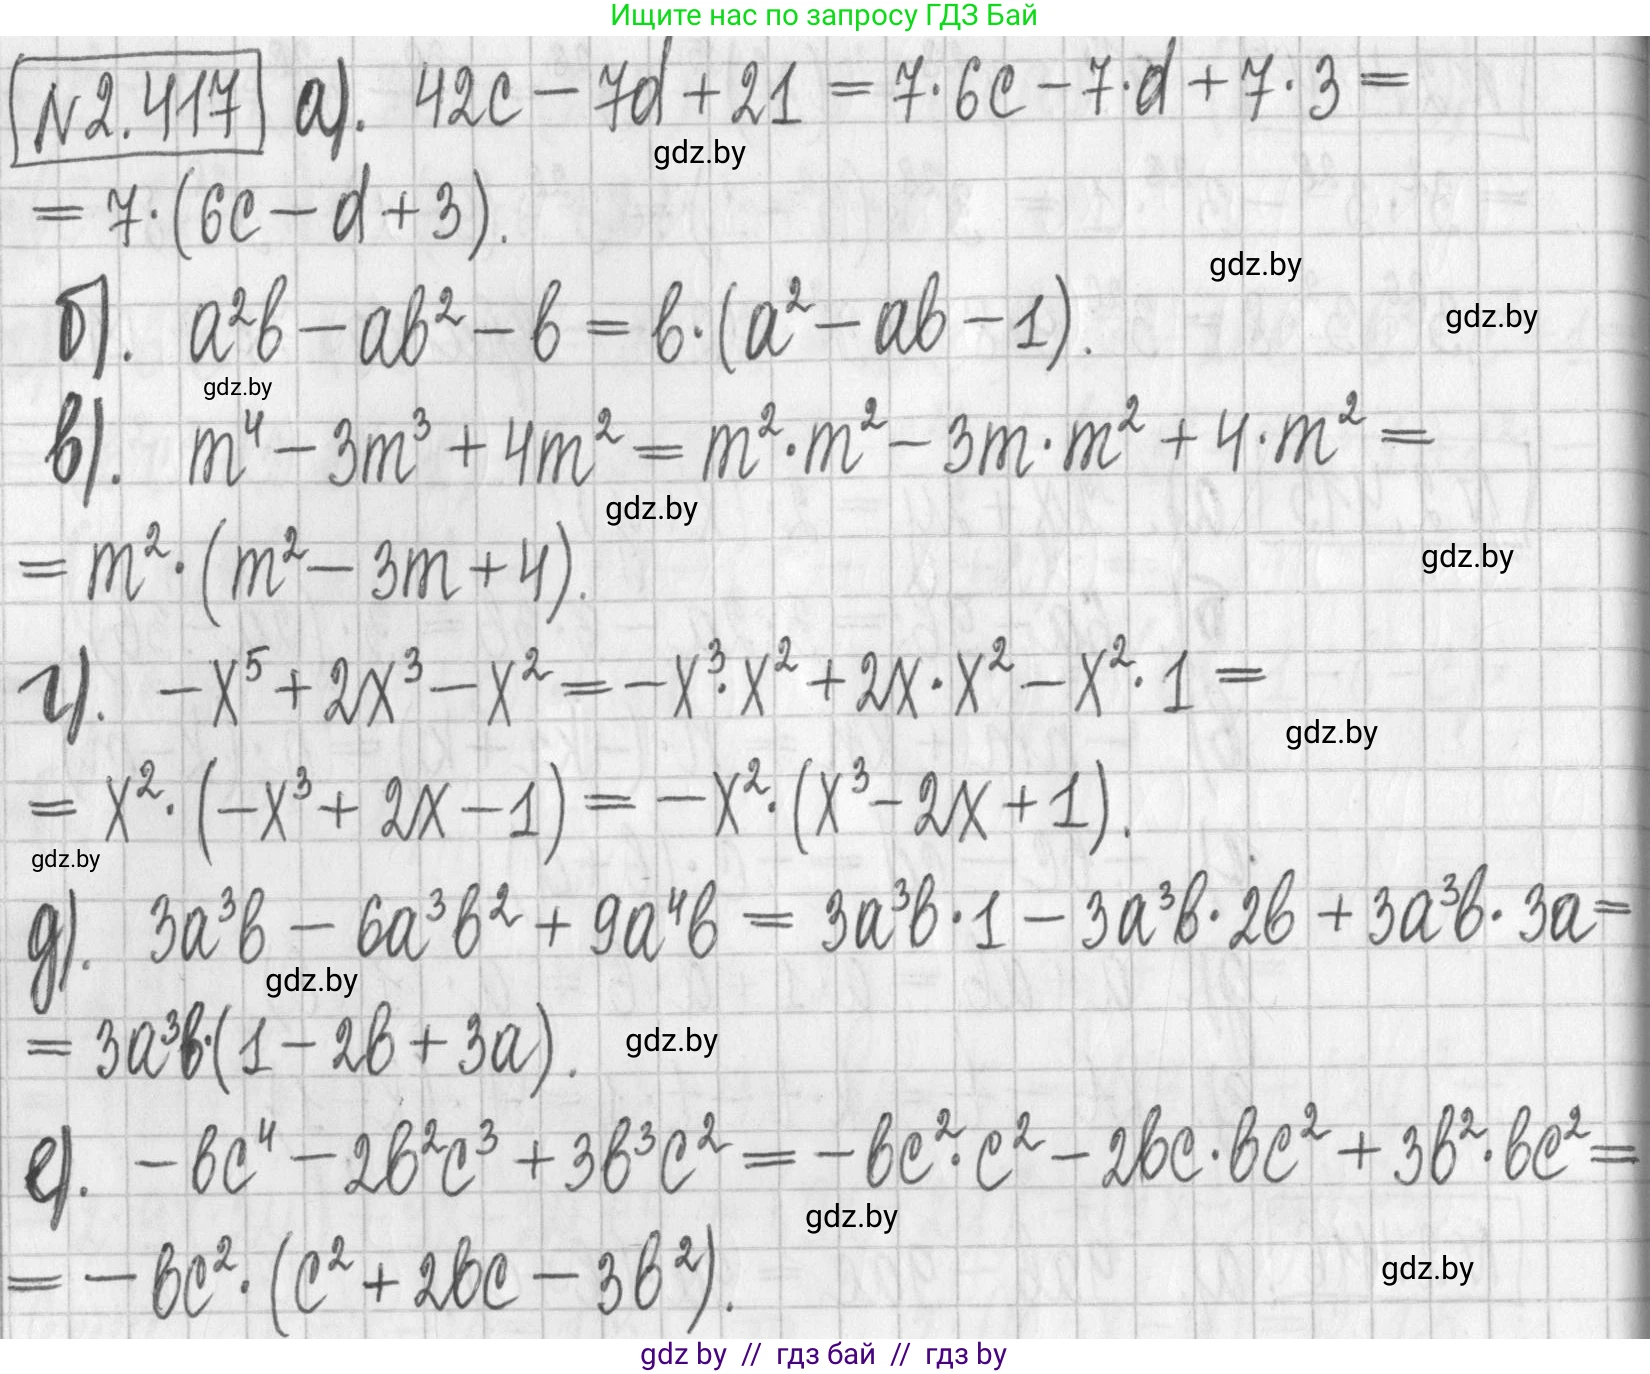 Ищите нас по запросу ГДЗ Бай
№2.417 а). 42c – 7d + 21 = 7·6c – 7·d + 7·3 =
gdz.by
= 7·(6c – d + 3).
gdz.by
б). a²b – ab² – b = b·(a² – ab – 1).
gdz.by
gdz.by
в). m⁴ – 3m³ + 4m² = m²·m² – 3m·m² + 4·m² =
gdz.by
= m²·(m² – 3m + 4).
gdz.by
г). –x⁵ + 2x³ – x² = –x³·x² + 2x·x² – x²·1 =
gdz.by
= x²·(–x³ + 2x – 1) = –x²·(x³ – 2x + 1).
gdz.by
д). 3a³b – 6a³b² + 9a⁴b = 3a³b·1 – 3a³b·2b + 3a³b·3a =
gdz.by
= 3a³b·(1 – 2b + 3a).
gdz.by
е). –bc⁴ – 2b²c³ + 3b³c² = –bc²·c² – 2bc·bc² + 3b²·bc² =
gdz.by
= –bc²·(c² + 2bc – 3b²).
gdz.by
gdz by // гдз бай // гдз by